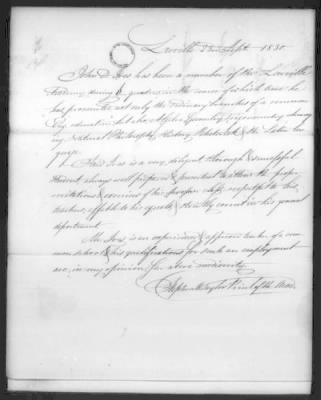 Lowville 3d Sept 1830.
John D. Ives has been a member of the Lowville
Academy during quarters in the course of which time he
has pursued not only the ordinary branches of a common
education but also Algebra Geometry Trigonometry
Natural Philosophy, History, Rhetoric & the Latin lan
guage.
Ives is a very diligent thorough & successful
student always well prepared & punctual within the prepar
recitations & exercises of his proper class, respectful to his
teachers, affable to his equals & strictly moral in his general
deportment.
Mr. Ives is an experienced & approved teacher of a com
mon school & his qualifications for such an employment
are, in my opinion, far above mediocrity.
Stephen W. Taylor Prin. of the